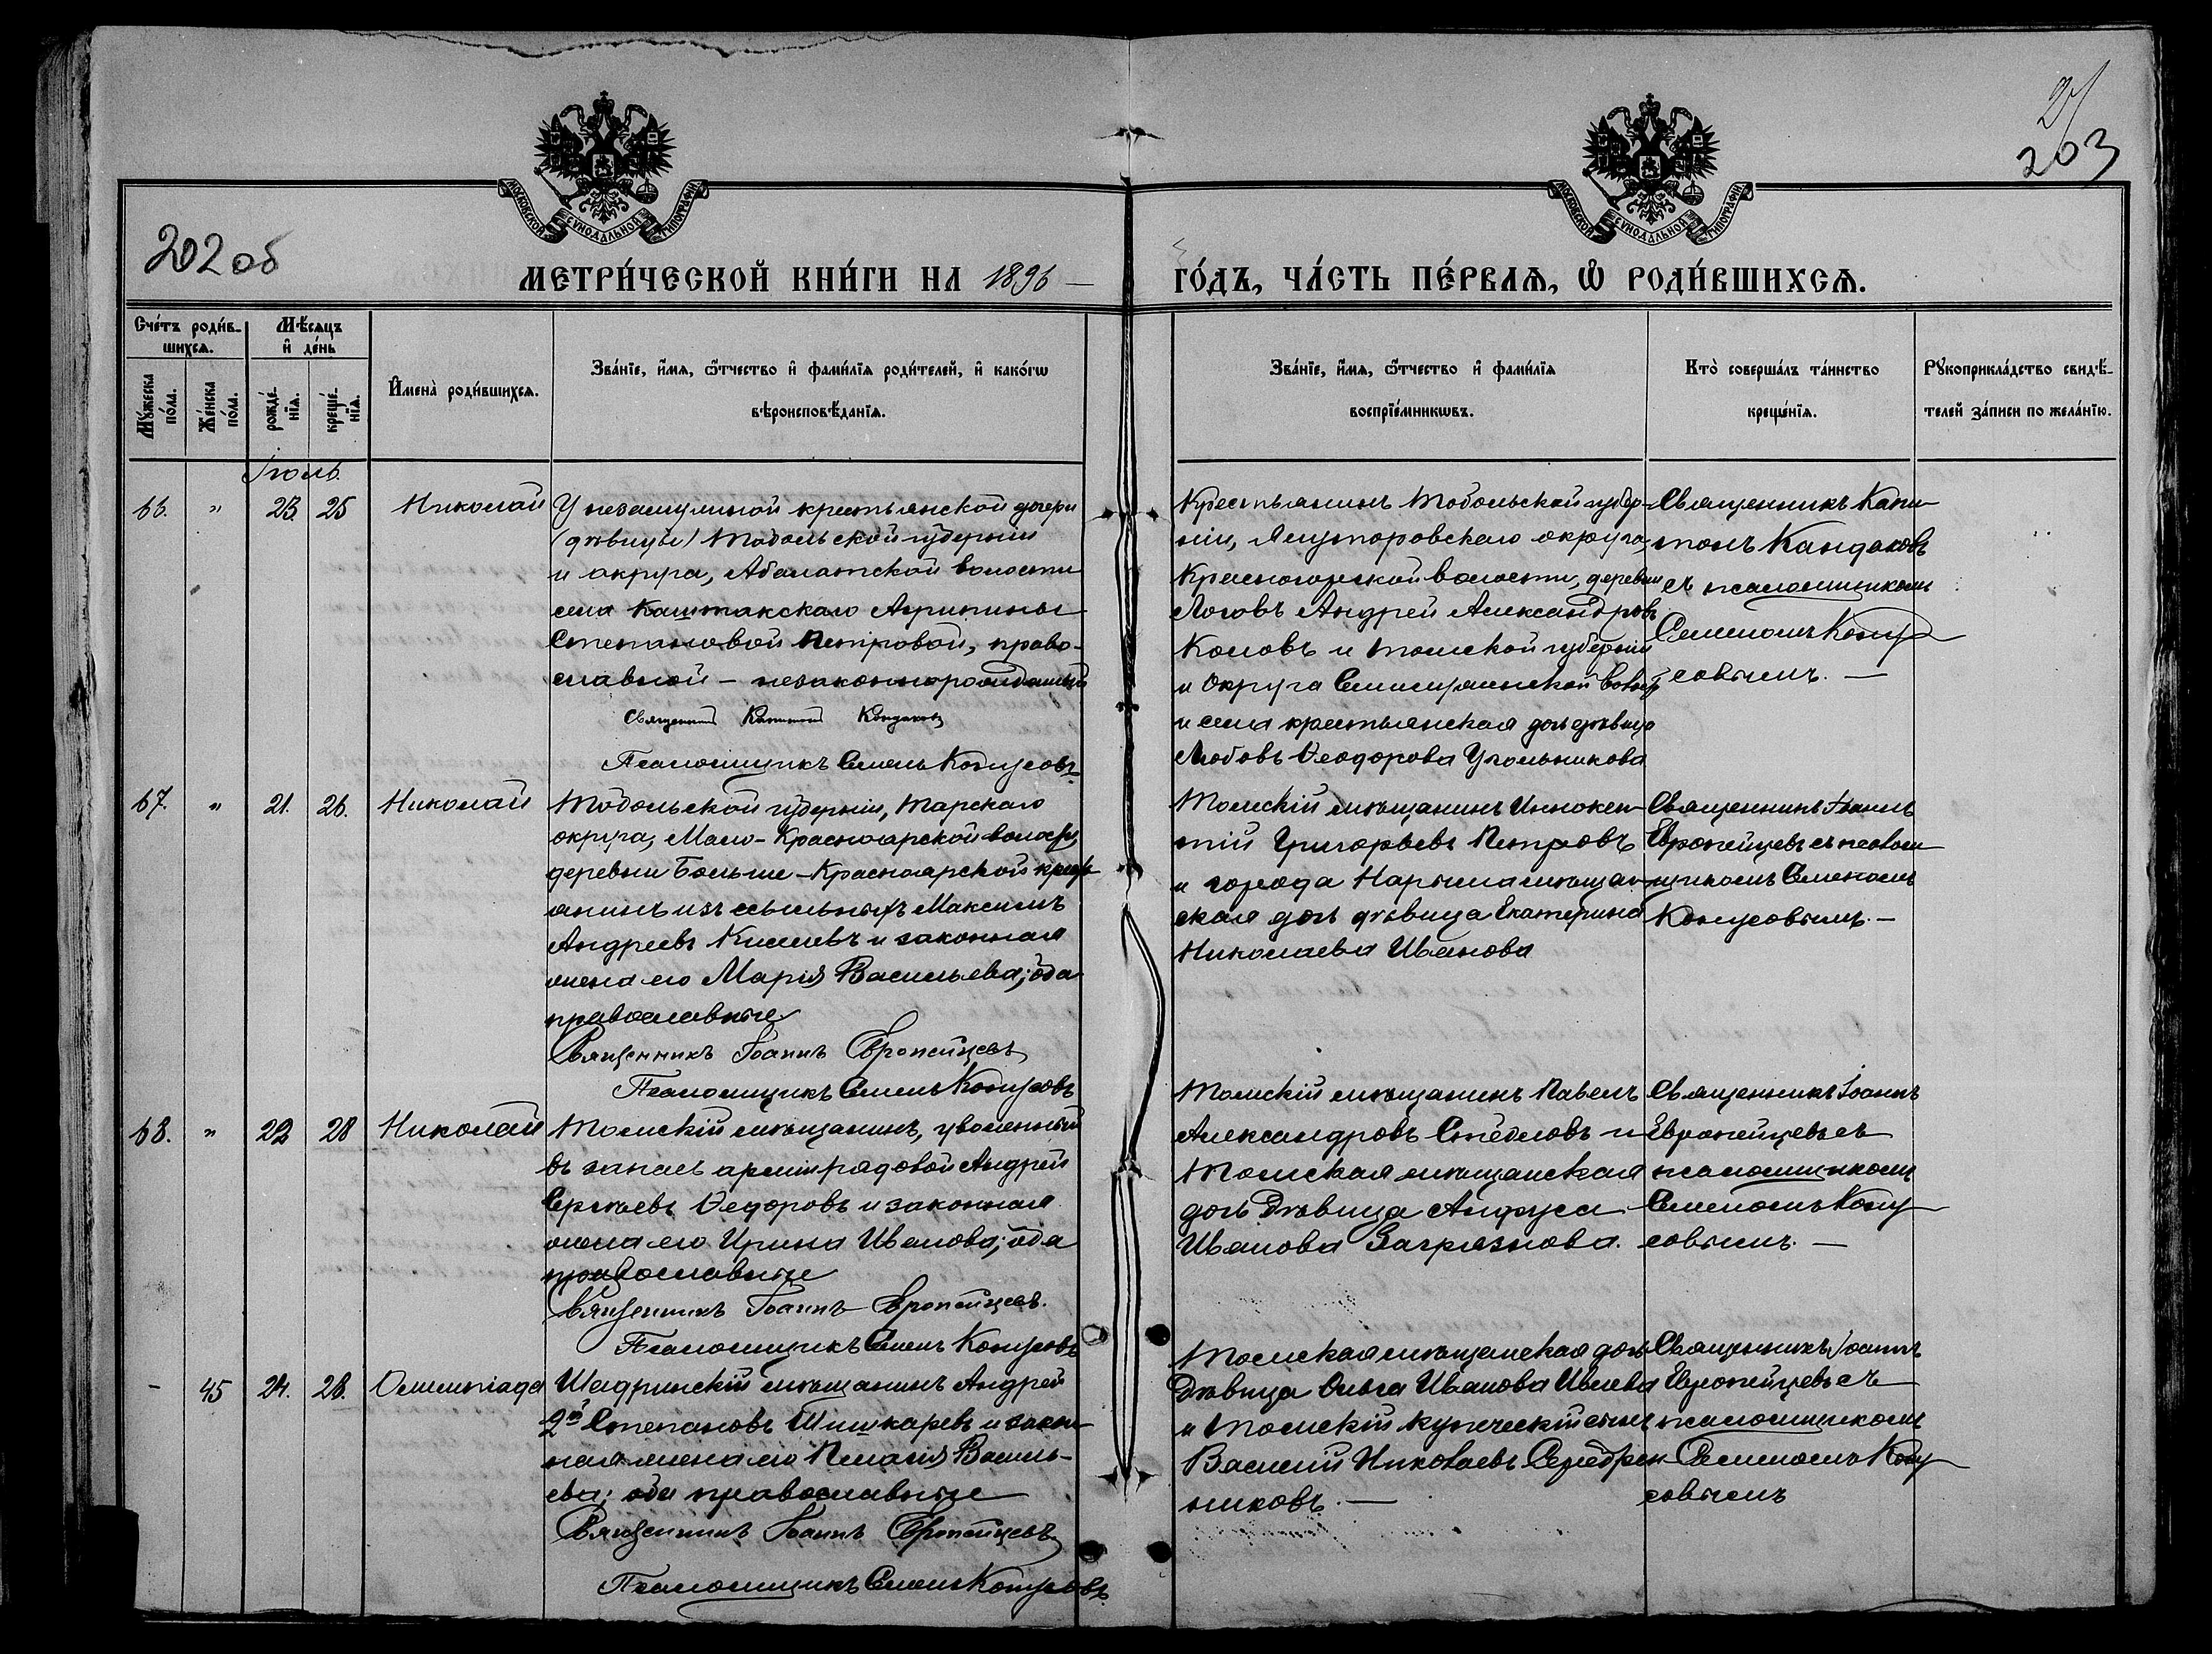 21
203
202 об
МОСКОВСКОЙ СѴНОДАЛЬНОЙ ТИПОГРАФІИ
МОСКОВСКОЙ СѴНОДАЛЬНОЙ ТИПОГРАФІИ
МЕТРИ́ЧЕСКОЙ КНИ́ГИ НА 1896 — ГО́ДЪ, ЧА́СТЬ ПЕ́РВАѦ, Ѡ҆ РОДИ́ВШИХСѦ.
Сче́тъ роди́в-
шихсѧ.
Мѣ́сѧцъ
и҆ де́нь
Мꙋ́жеска
по́ла.
Же́нска
по́ла.
рожде́-
нїѧ.
креще́-
нїѧ.
И҆мена̀ роди́вшихсѧ.
Зва́нїе, и҆́мѧ, ѻ҆́тчество и҆ фами́лїѧ роди́телей, и҆ како́гѡ
вѣроисповѣ́данїѧ.
Зва́нїе, и҆́мѧ, ѻ҆́тчество и҆ фами́лїѧ
воспрїе́мникѡвъ.
Кто̀ соверша́лъ та́инство
креще́нїѧ.
Рꙋкоприкла́дство свидѣ́-
телей за́писи по жела́нїю.
Іюль.
66. " 23. 25 Николай
У незамужной крестьянской дочери
(дѣвицы) Тобольской губерніи
и округа, Абалатской волости
села Каштакскаго Агрипины
Степановой Петровой, право-
славной – незаконнорожденный
Священникъ Капитонъ Кандаковъ
Псаломщикъ Семенъ Кожусовъ
Крестьянинъ Тобольской губер-
ніи, Ялуторовскаго округа,
Красногорской волости, деревни
Логовъ Андрей Александровъ
Коловъ и Томской губерніи
и округа Семилужинской волос.
и села крестьянская дочь дѣвица
Любовь Ѳеодорова Угольникова
Священникъ Капи-
тонъ Кандаковъ
съ псаломщикомъ
Семеномъ Кожу-
совымъ. —
67. " 21. 26. Николай
Тобольской губерніи, Тарскаго
округа, Мало-Красноярской волости,
деревни Больше-Красноярской крест-
янинъ изъ ссыльныхъ Максимъ
Андреевъ Киселевъ и законная
жена его Марія Васильева; оба
православные
Священникъ Іоаннъ Европейцевъ
Псаломщикъ Семенъ Кожусовъ
Томскій мѣщанинъ Иннокен-
тій Григорьевъ Петровъ
и города Нарыма мѣщан-
ская дочь дѣвица Екатерина
Николаева Иванова
Священникъ Іоаннъ
Европейцевъ съ псалом-
щикомъ Семеномъ
Кожусовымъ. —
68. " 22 28 Николай
Томскій мѣщанинъ, уволенный
въ запасъ арміи рядовой Андрей
Сергѣевъ Ѳедоровъ и законная
жена его Ирина Иванова; оба
православные
Священникъ Іоаннъ Европейцевъ.
Псаломщикъ Семенъ Кожусовъ
Томскій мѣщанинъ Павелъ
Александровъ и
Томская мѣщанская
дочь Дѣвица Анфуса
Иванова Загрязнова.
Священникъ Іоаннъ
Европейцевъ съ
псаломщикомъ
Семеномъ Кожу-
совымъ. —
– 45 24. 28. Олимпіада
Шадринскій мѣщанинъ Андрей
2й Степановъ Шишкаревъ и закон-
ная жена его Пелагія Василь-
ева; оба православные
Священникъ Іоаннъ Европейцевъ
Псаломщикъ Семенъ Кожусовъ
Томская мѣщанская дочь
Дѣвица Ольга Иванова Ивлева
и Томскій купеческій сынъ
Василій Николаевъ Серебрен-
никовъ. —
Священникъ Іоаннъ
Европейцевъ съ
псаломщикомъ
Семеномъ Кожу-
совымъ